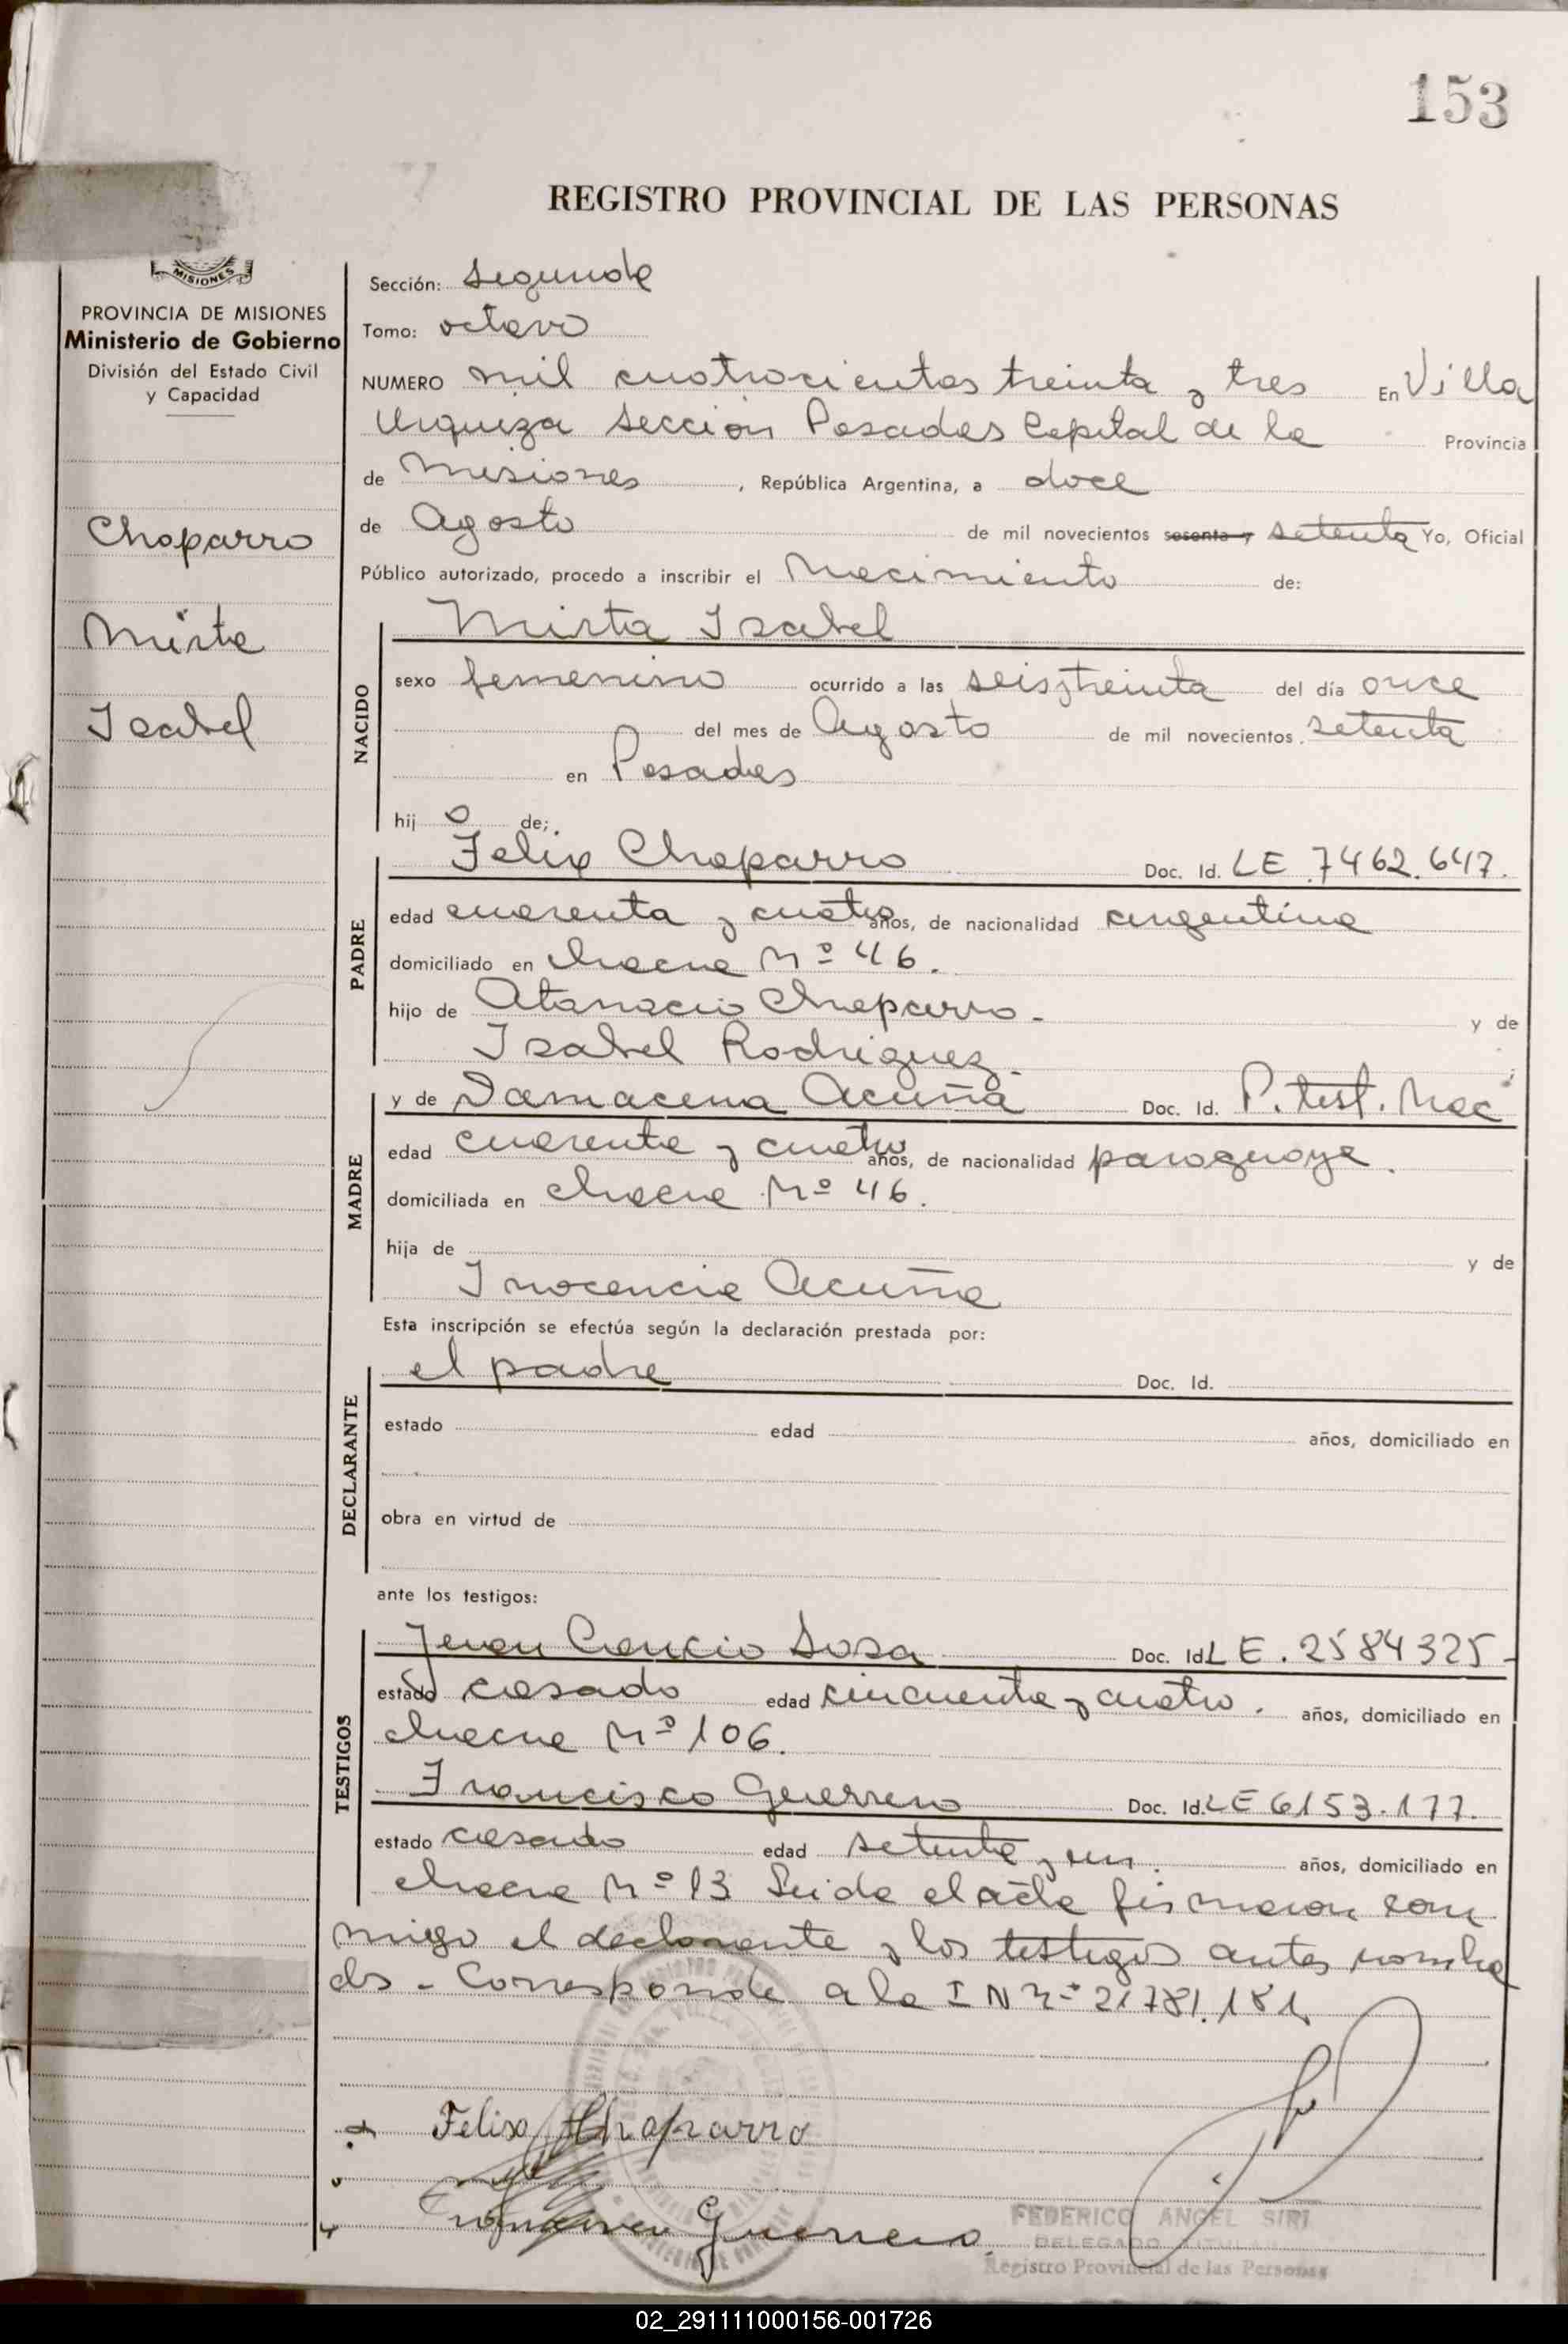 153
REGISTRO PROVINCIAL DE LAS PERSONAS
MISIONES
PROVINCIA DE MISIONES
Ministerio de Gobierno
División del Estado Civil
y Capacidad
Chaparro
Mirta
Isabel
Sección: Segunda
Tomo: octavo
NUMERO mil cuatrocientos treinta y tres En Villa
Urquiza Sección Posadas Capital de la Provincia
de Misiones, República Argentina, a doce
de Agosto de mil novecientos sesenta y setenta Yo, Oficial
Público autorizado, procedo a inscribir el Nacimiento de:
NACIDO
Mirta Isabel
sexo femenino ocurrido a las seis y treinta del día once
del mes de Agosto de mil novecientos setenta
en Posadas
hij a de;
PADRE
Felix Chaparro Doc. Id. LE 7462.647.
edad cuarenta y cuatro años, de nacionalidad argentina
domiciliado en chacra Nº 46.
hijo de Atanacio Chaparro - y de
Isabel Rodriguez -
MADRE
y de Damacena Acuña Doc. Id. P. test. Nac
edad cuarenta y cuatro años, de nacionalidad paraguaya.
domiciliada en chacra Nº 46.
hija de y de
Inocencia Acuña
Esta inscripción se efectúa según la declaración prestada por:
DECLARANTE
el padre Doc. Id.
estado edad años, domiciliado en
obra en virtud de
ante los testigos:
TESTIGOS
Juan Cancio Sosa Doc. Id. LE. 2584325-
estado casado edad cincuenta y cuatro. años, domiciliado en
chacra Nº 106.
Francisco Guerrero Doc. Id. LE 6153.177.
estado casado edad setenta y un. años, domiciliado en
chacra Nº 13 Leida el acta firmaron con
migo el declarante y los testigos antes nombra
dos - Corresponde a la I N Nº 21.781.181
Felix Chaparro
Guerrero
FEDERICO ANGEL SIRI
DELEGADO TITULAR
Registro Provincial de las Personas
02_291111000156-001726